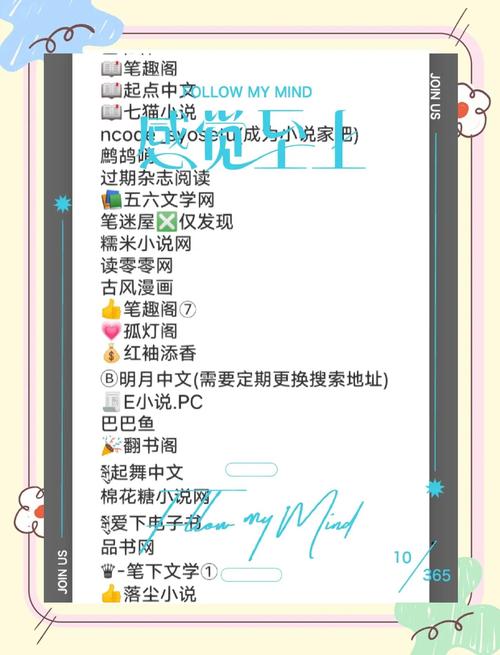 📖笔趣阁
📖起点中文
FOLLOW MY MIND
📖七猫小说
感觉至上
ncode.syosetu(成为小说家吧)
鹧鸪哨
过期杂志阅读
📚五六文学网
笔迷屋❎仅发现
糯米小说网
读零零网
古风漫画
👍笔趣阁⑦
💗孤灯阁
💰红袖添香
Ⓑ明月中文(需要定期更换搜索地址)
📃E小说.PC
巴巴鱼
🎉翻书阁
起舞中文
棉花糖小说网
爱下电子书
Follow my Mind
品书网
♛-笔下文学①
👍落尘小说
JOIN US
JOIN US
10/365